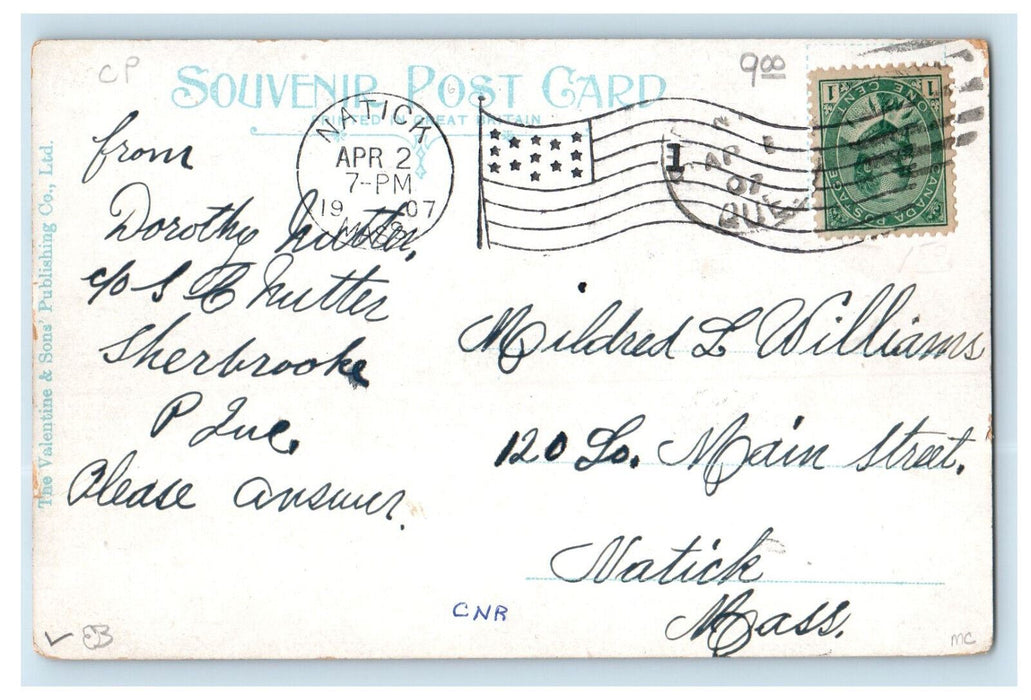 CP
9.00
SOUVENIR POST CARD
PRINTED IN GREAT BRITAIN
NATICK
APR 2
7-PM
1907
MASS.
1
AP 1
07
QUE
CANADA POSTAGE
ONE CENT
1 1
from
Dorothy Nutter,
c/o S C Nutter
Sherbrooke
P Que.
Please answer.
Mildred L Williams
120 So. Main Street.
Natick
Mass.
CNR
EB
MC
The Valentine & Sons' Publishing Co., Ltd.